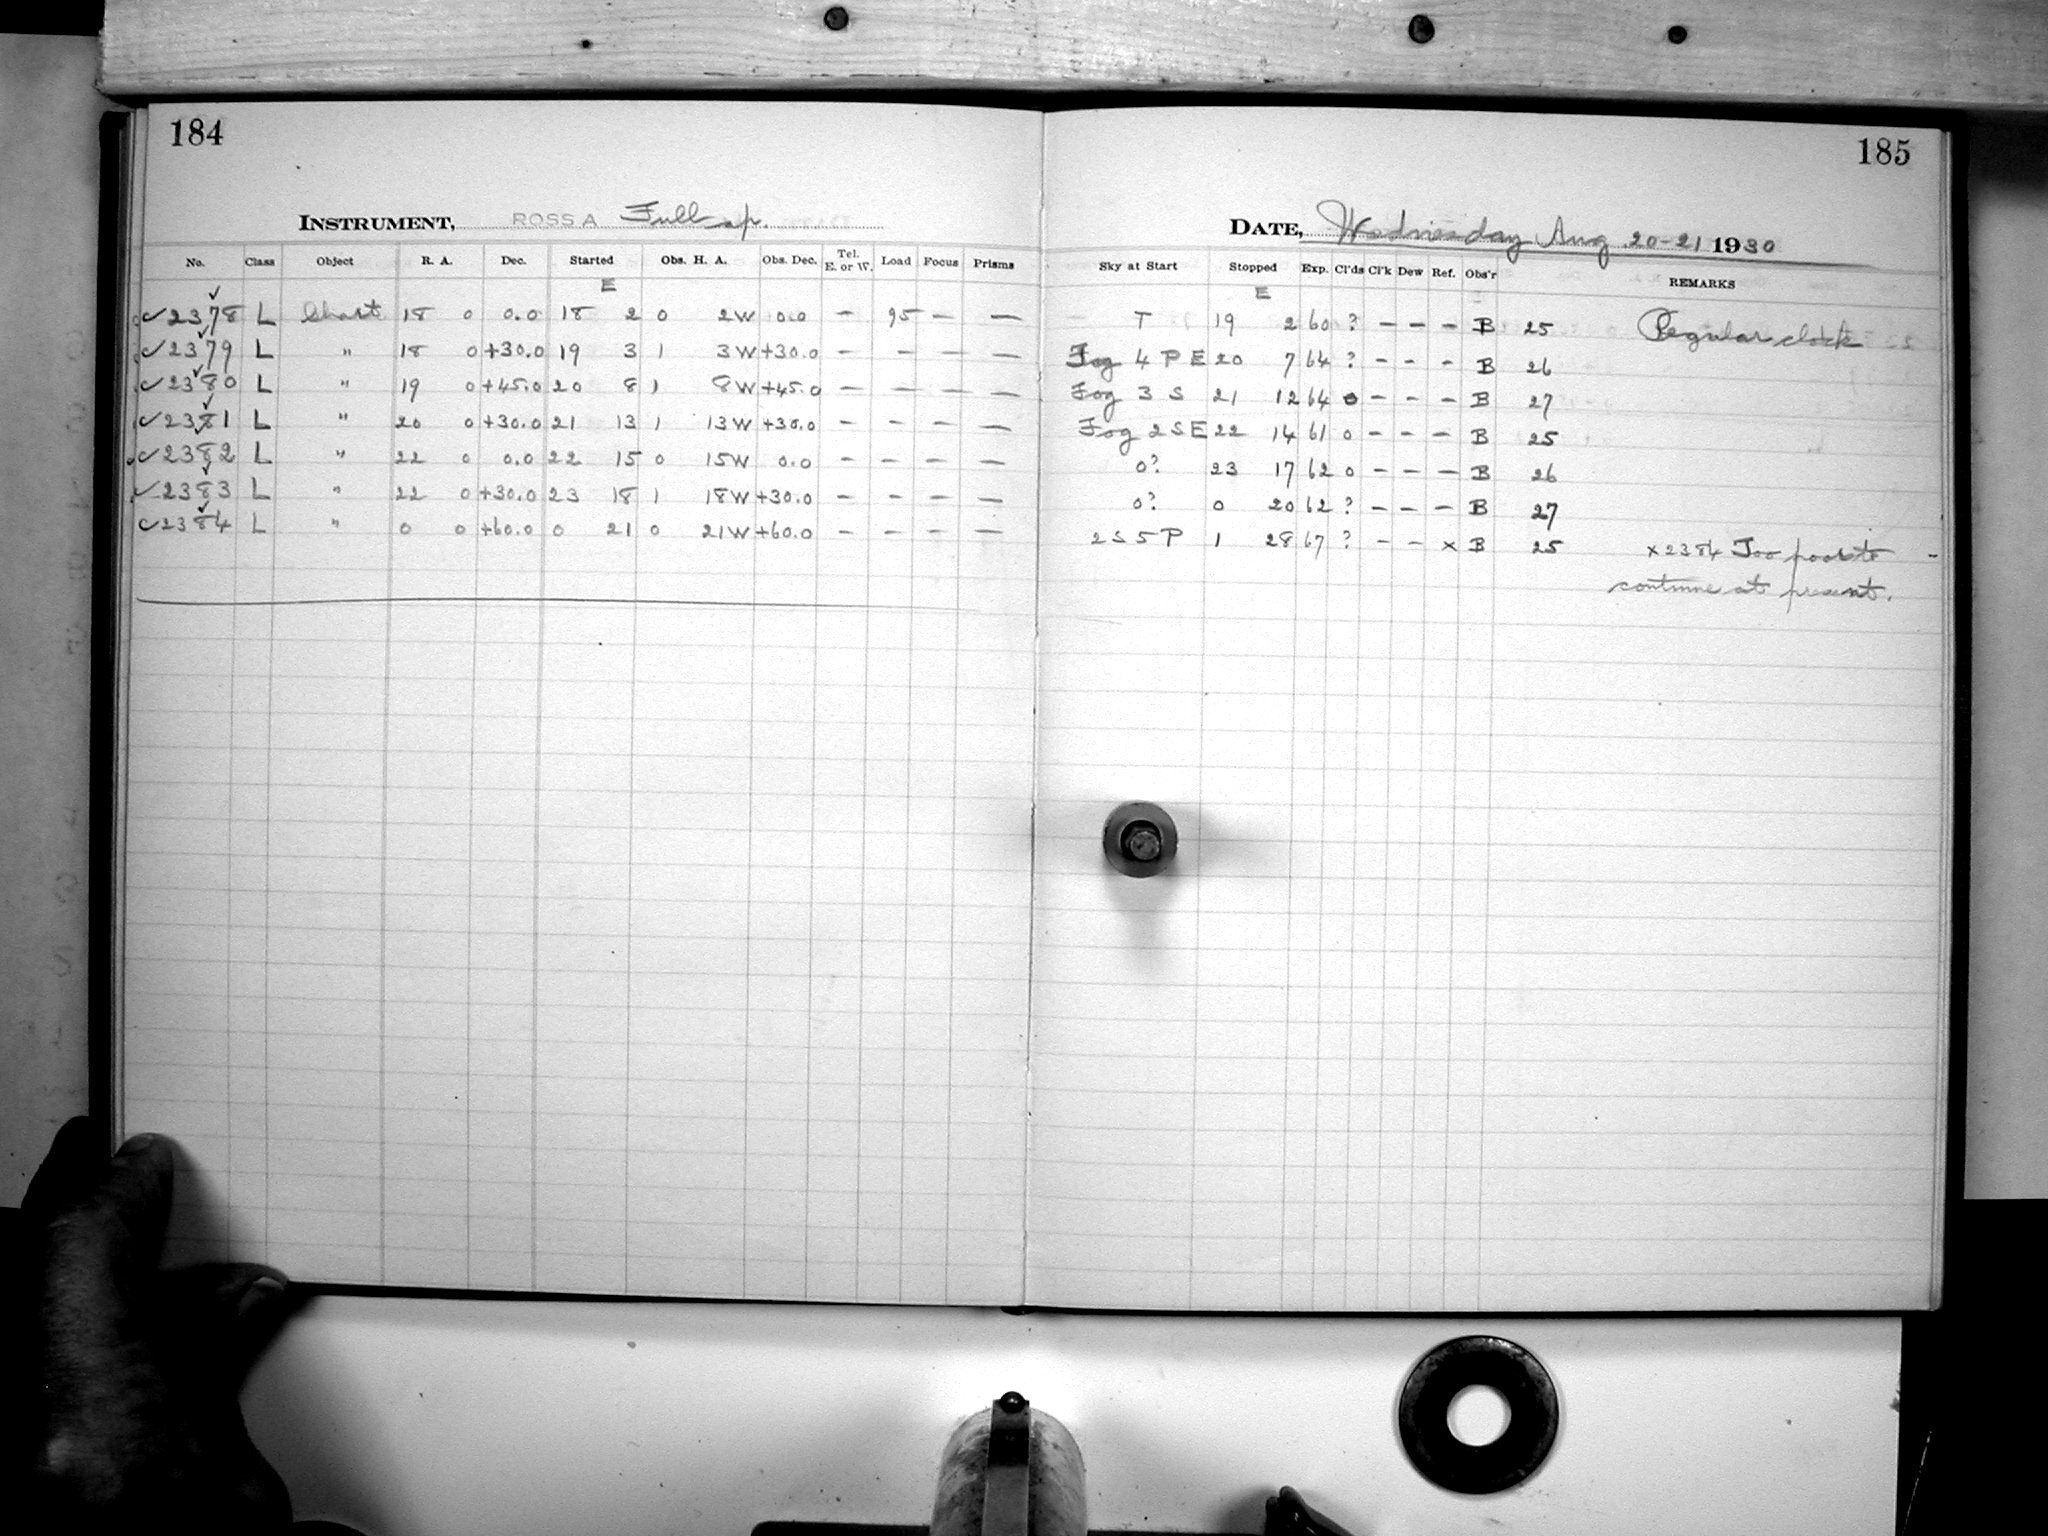 184
INSTRUMENT, ROSS A Full ap.
No. Class Object R. A. Dec. Started Obs. H. A. Obs. Dec. Tel. E. or W. Load Focus Prisms
E
✓2378 L Chart 18 0 0.0 18 2 0 2W 0.0 — 95 — —
✓2379 L " 18 0 +30.0 19 3 1 3W +30.0 — — — —
✓2380 L " 19 0 +45.0 20 8 1 8W +45.0 — — — —
✓2381 L " 20 0 +30.0 21 13 1 13W +30.0 — — — —
✓2382 L " 22 0 0.0 22 15 0 15W 0.0 — — — —
✓2383 L " 22 0 +30.0 23 18 1 18W +30.0 — — — —
✓2384 L " 0 0 +60.0 0 21 0 21W +60.0 — — — —
185
DATE, Wednesday Aug 20-21 1930
Sky at Start Stopped Exp. Cl'ds Cl'k Dew Ref. Obs'r REMARKS
E
T 19 2 60 ? — — — B 25 Regular clock
Fog 4 P E 20 7 64 ? — — — B 26
Fog 3 S 21 12 64 0 — — — B 27
Fog 2 S E 22 14 61 0 — — — B 25
0? 23 17 62 0 — — — B 26
0? 0 20 62 ? — — — B 27
2 S 5 P 1 28 67 ? — — x B 25 x 2384 Too poor to
continue at present.